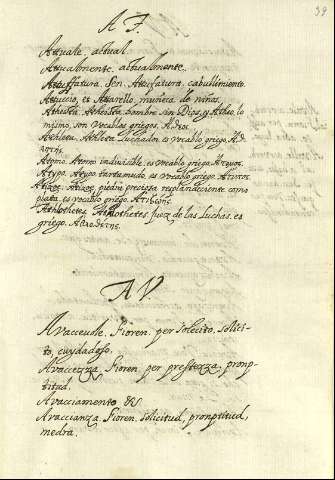 39
A T.
Attuale. actual.
Attualmente. actualmente.
Attuffatura. Sen. Attuffatura. cabullimiento.
Attuccio, es Attarello, muñeca de niños.
Atheista. Atheista hombre sin Dios, y Atheo, lo
mismo, son vocablos griegos. Αθεοι.
Athleta. Athleta Luchador. es vocablo griego. Αθ-
λητης.
Atomo. Atomo indivisible. es vocablo griego.
Atypo. Atypo tartamudo. es vocablo griego.
piedra preciosa resplandeciente como
plata. es vocablo griego.
Athlothetes. Athlothetes juez de las Luchas. es
griego. Αθλοθετης.
A V.
Avaccevole. Fioren. per sollecito, solici-
to, cuydadoso.
Avaccezza. Fioren. per prestezza, promp-
titud.
Avacciamento &c.
Avaccianza. Fioren. solicitud, promptitud,
medra.